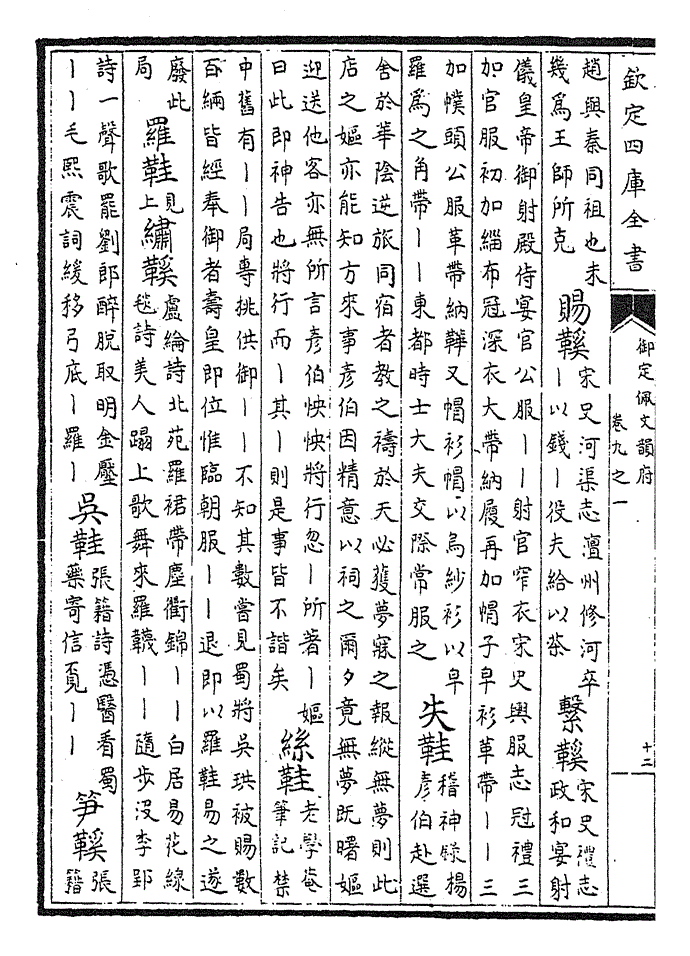 欽定四庫全書
御定佩文韻府
卷九之一
十二
趙興秦同祖也未
幾為王師所克
賜鞵
宋史河渠志澶州修河卒
丨以錢丨役夫給以茶
繫鞵
宋史禮志
政和宴射
儀皇帝御射殿侍宴官公服丨丨射官窄衣宋史輿服志冠禮三
加官服初加緇布冠深衣大帶納履再加帽子皁衫革帶丨丨三
加幞頭公服革帶納鞾又帽衫帽以烏紗衫以皁
羅為之角帶丨丨東都時士大夫交際常服之
失鞋
稽神錄楊
彥伯赴選
舍於華陰逆旅同宿者教之禱於天必獲夢寐之報縱無夢則此
店之嫗亦能知方來事彥伯因精意以祠之爾夕竟無夢既曙嫗
迎送他客亦無所言彥伯怏怏將行忽丨所著丨嫗
曰此即神告也將行而丨其丨則是事皆不諧矣
絲鞋
老學菴
筆記禁
中舊有丨丨局專挑供御丨丨不知其數嘗見蜀將吳珙被賜數
百緉皆經奉御者壽皇即位惟臨朝服丨丨退即以羅鞋易之遂
廢此
局
羅鞋
見
上
繡鞵
盧綸詩北苑羅裙帶塵衢錦丨丨白居易花線
毯詩美人蹋上歌舞來羅韈丨丨隨步沒李郢
詩一聲歌罷劉郎醉脫取明金壓
丨丨毛熙震詞緩移弓底丨羅丨
吳鞋
張籍詩憑醫看蜀
藥寄信覔丨丨
笋鞵
張
籍